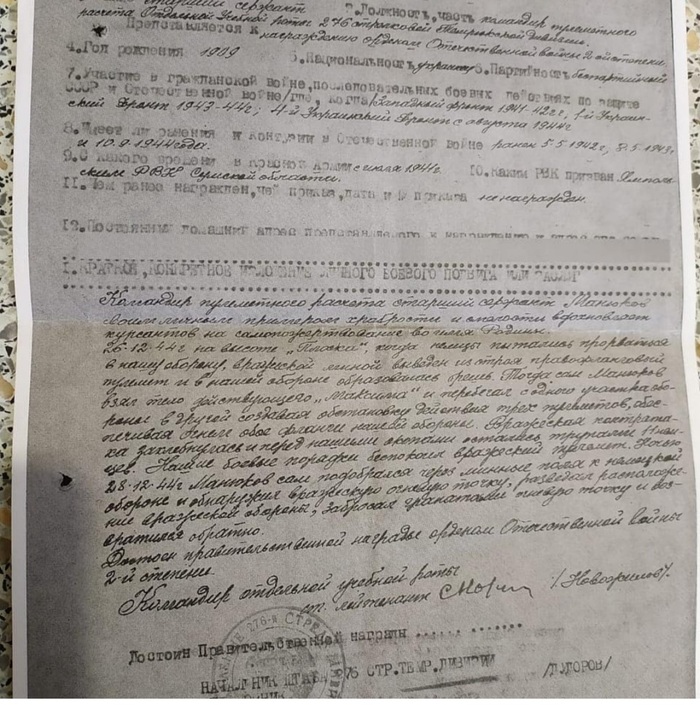 старший сержант 2.Должность, часть командир пулеметного
расчета Отдельной Учебной роты 276 стрелковой Темрюкской дивизии.
Представляется к награждению орденом Отечественной войны 2-й степени
4.Год рождения 1909 5.Национальность украинец 6.Партийность беспартийный
7.Участие в гражданской войне, последовательных боевых действиях по защите
СССР и Отечественной войне/где, когда/Западный фронт 1941-42гг; 1-й Украин-
ский Фронт 1943-44г; 4-й Украинский Фронт с августа 1944г
8.Имеет ли ранения и контузии в Отечественной войне ранен 5.5.1942г;
и 10.9.1944года.
9.С какого времени в красной Армии с июля 1941г. 10.каким РВК призван Ямполь-
ским РВК Сумской области.
11.Чем ранее награжден, чей приказ, дата и № приказа не награжден.
12.Постоянный домашний адрес
I.КРАТКОЕ, КОНКРЕТНОЕ ИЗЛОЖЕНИЕ ЛИЧНОГО БОЕВОГО ПОДВИГА ИЛИ ЗАСЛУГ
Командир пулеметного расчета старший сержант Манюков
своим личным примером храбрости и смелости вдохновляет
курсантов на самопожертвование во имя Родины.
26-12-44г на высоте „Плоска", когда немцы пытались прорваться
в нашу оборону, вражеской миной выведен из строя правофланговый
пулемет и в нашей обороне образовалась брешь. Тогда сам Манюков
взял тело действующего „Максима" и перебегал с одного участка обо-
роны в другой создавая обстановку действия трех пулеметов, обес-
печивая огнем оба фланги нашей обороны. Вражеская контрата-
ка захлебнулась и перед нашими окопами остались трупами 11 нем-
цев. Наши боевые порядки беспокоил вражеский пулемет. Ночью
28-12-44г Манюков сам подобрался через минные поля к немецкой
обороне и обнаружил вражескую огневую точку, разведал расположе-
ние вражеской обороны, забросал гранатами огневую точку и воз-
вратился обратно.
Достоин правительственной награды орденом Отечественной войны
2-й степени.
Командир отдельной учебной роты
ст. лейтенант
Достоин Правительственной награды .......
НАЧАЛЬНИК ШТАБА 276 СТР.ТЕМР.ДИВИЗИИ
/ТУГОРОВ/